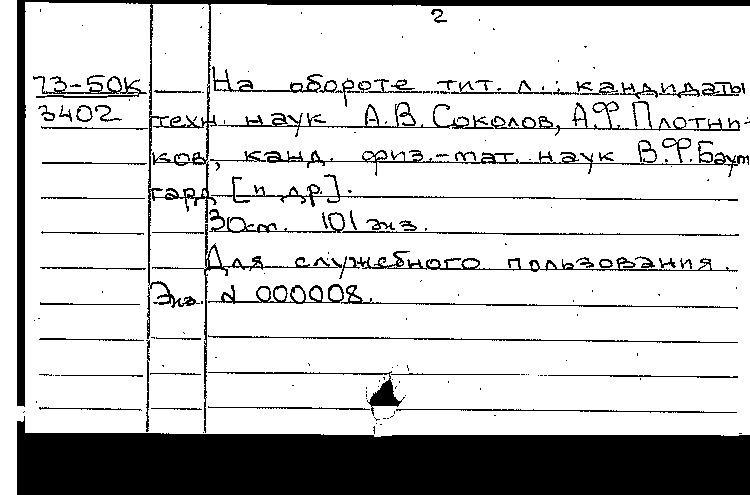 2
73-50к На обороте тит. л.: кандидаты
3402 техн. наук А.В. Соколов, А.Ф. Плотни-
ков, канд. физ.-мат. наук В.Ф. Баум
гард [и др].
30см. 101 экз.
Для служебного пользования.
Экз. № 000008.